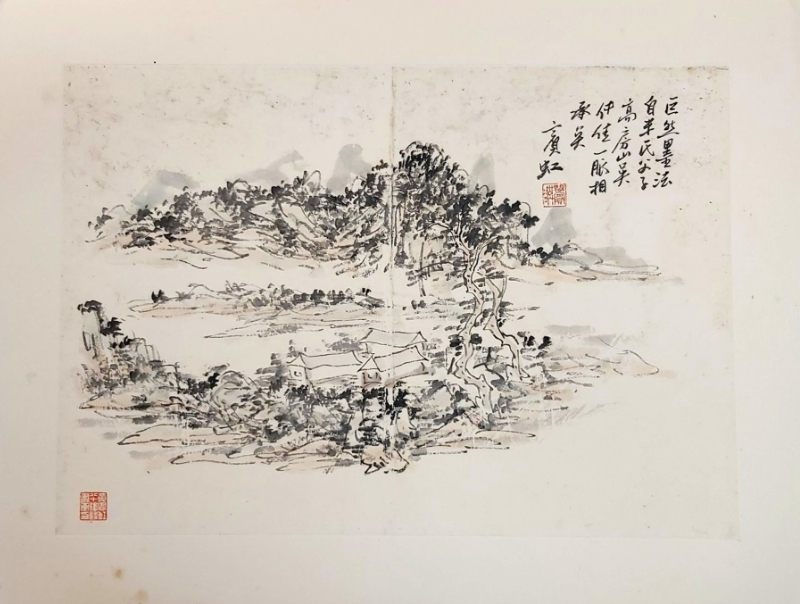 巨然墨法
自米氏父子
高房山吴
仲佳一脉相
承矣
賓虹